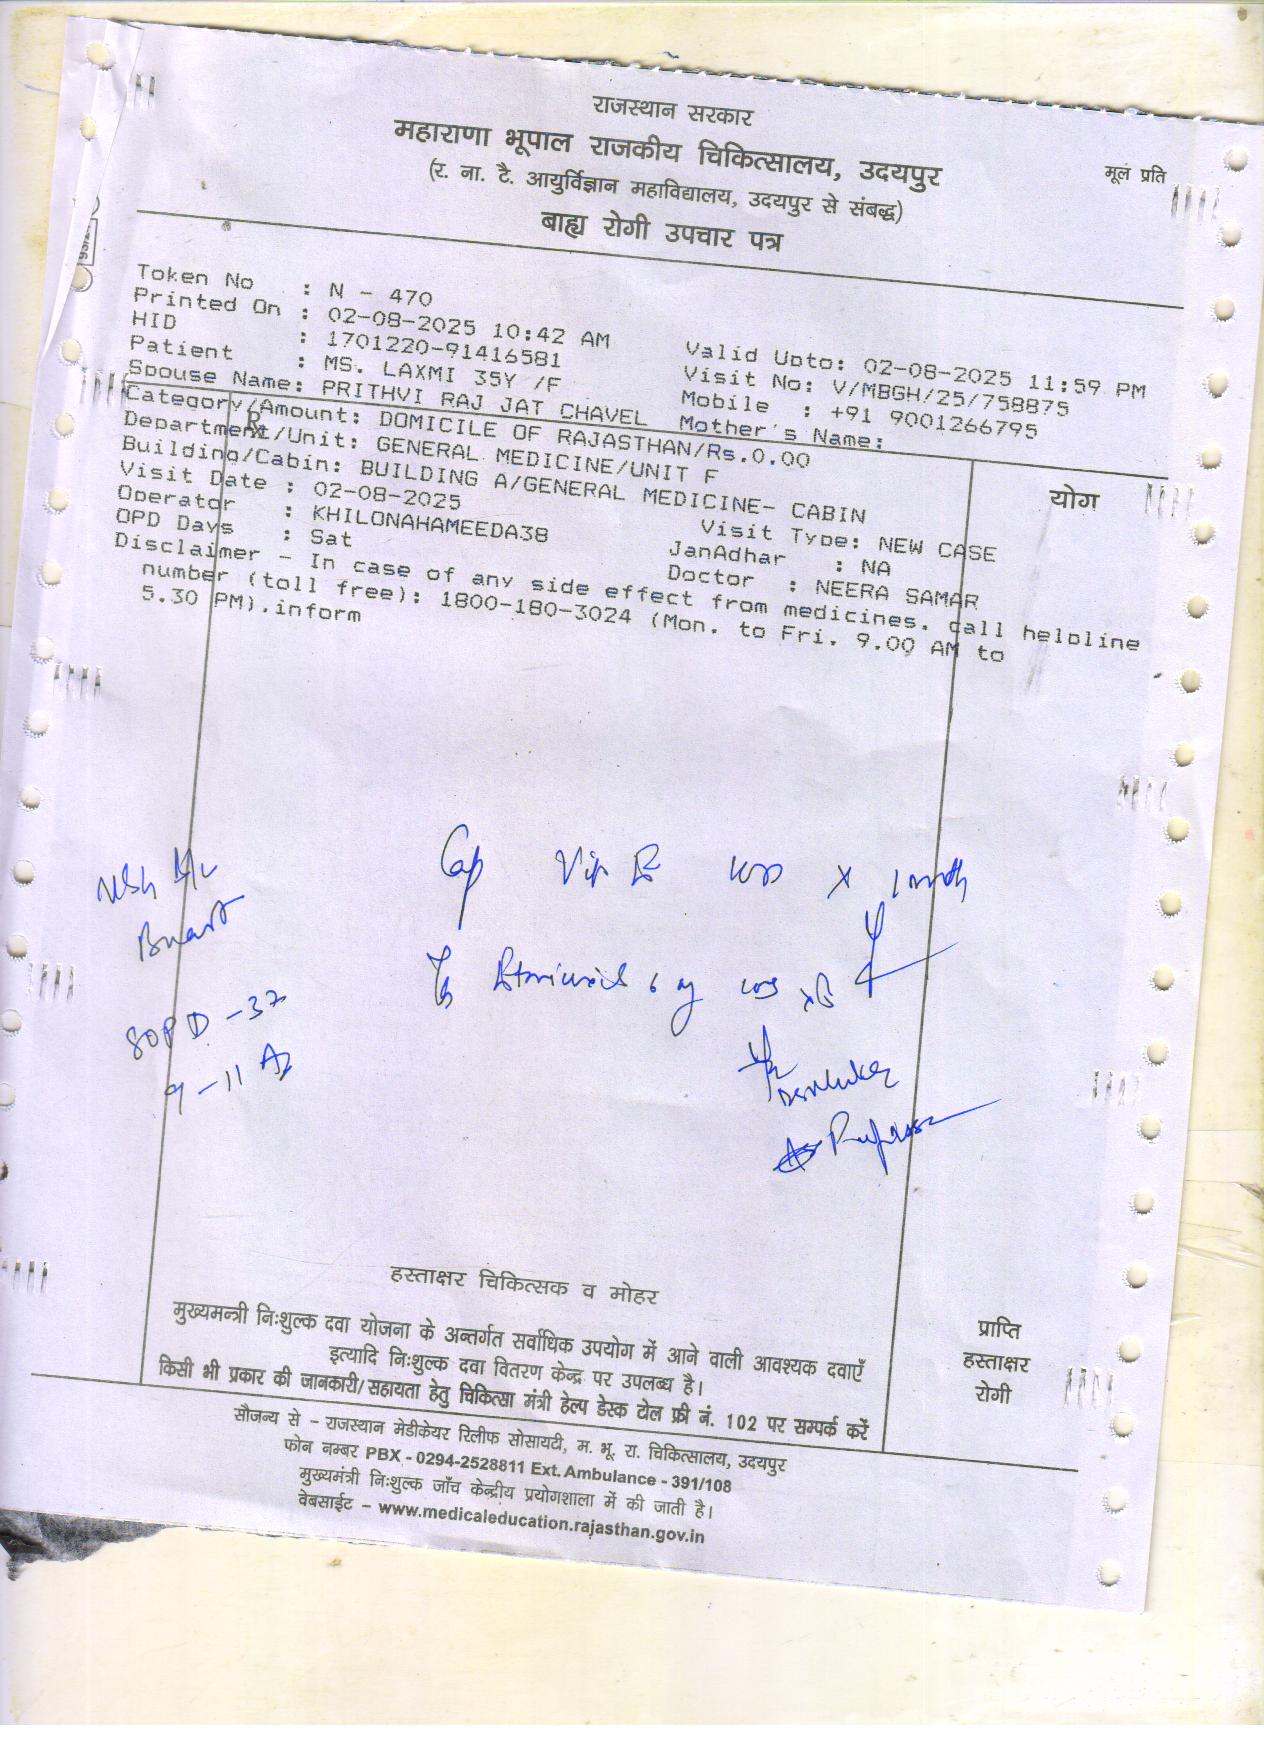 राजस्थान सरकार
महाराणा भूपाल राजकीय चिकित्सालय, उदयपुर
मूल प्रति
(र. ना. टै. आयुर्विज्ञान महाविद्यालय, उदयपुर से संबद्ध)
बाह्य रोगी उपचार पत्र
Token No : N - 470
Printed On : 02-08-2025 10:42 AM Valid Upto: 02-08-2025 11:59 PM
HID : 1701220-91416581 Visit No: V/MBGH/25/758875
Patient : MS. LAXMI 35Y /F Mobile : +91 9001266795
Spouse Name: PRITHVI RAJ JAT CHAVEL Mother's Name:
Category/Amount: DOMICILE OF RAJASTHAN/Rs.0.00
Department/Unit: GENERAL MEDICINE/UNIT F
Building/Cabin: BUILDING A/GENERAL MEDICINE- CABIN
Visit Date : 02-08-2025 Visit Type: NEW CASE
Operator : KHILONAHAMEEDA38 JanAdhar : NA
OPD Days : Sat Doctor : NEERA SAMAR
Disclaimer - In case of any side effect from medicines. call helpline
number (toll free): 1800-180-3024 (Mon. to Fri. 9.00 AM to
5.30 PM).inform
R
योग
Cap Vit E x 1 month
Breast
SOPD - 37
9 - 11
हस्ताक्षर चिकित्सक व मोहर
मुख्यमन्त्री निःशुल्क दवा योजना के अन्तर्गत सर्वाधिक उपयोग में आने वाली आवश्यक दवाएँ
इत्यादि निःशुल्क दवा वितरण केन्द्र पर उपलब्ध है।
किसी भी प्रकार की जानकारी/सहायता हेतु चिकित्सा मंत्री हेल्प डेस्क टोल फ्री नं. 102 पर सम्पर्क करें
प्राप्ति
हस्ताक्षर
रोगी
सौजन्य से – राजस्थान मेडीकेयर रिलीफ सोसायटी, म. भू. रा. चिकित्सालय, उदयपुर
फोन नम्बर PBX - 0294-2528811 Ext. Ambulance - 391/108
मुख्यमंत्री निःशुल्क जाँच केन्द्रीय प्रयोगशाला में की जाती है।
वेबसाईट – www.medicaleducation.rajasthan.gov.in